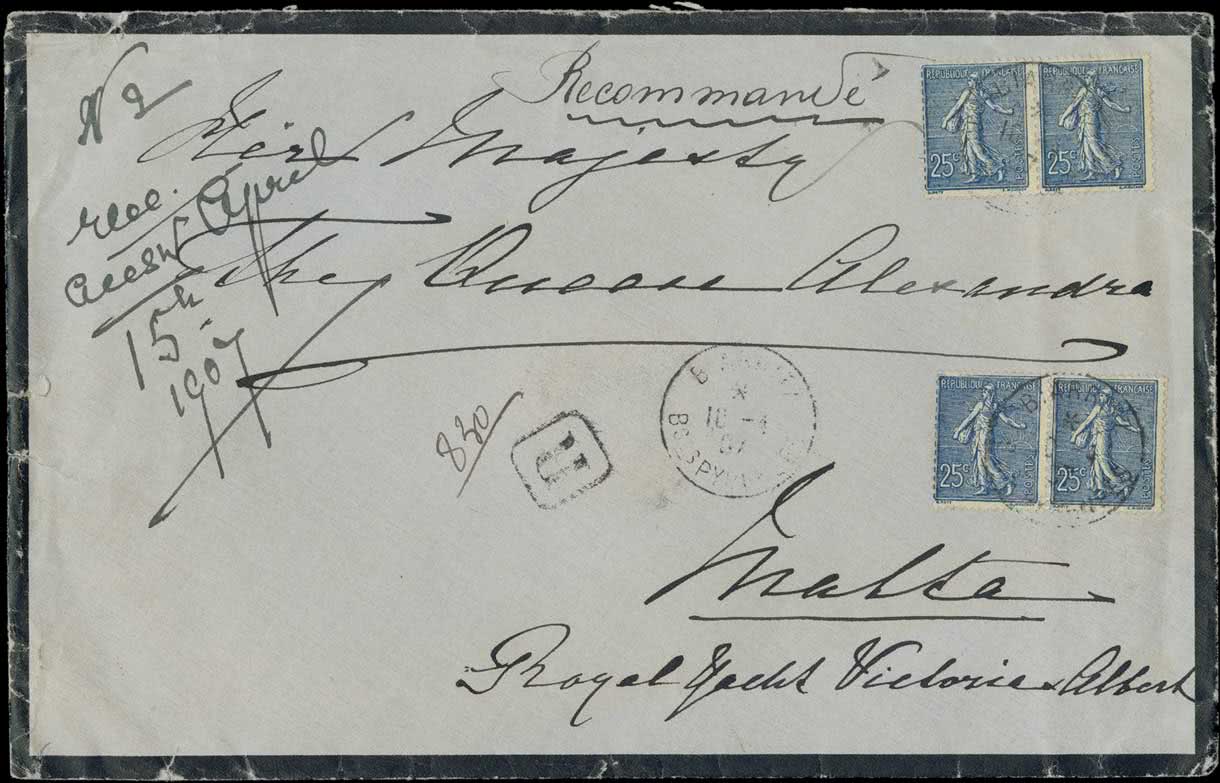 Recommandé
Nº 2
Her Majesty
The Queen Alexandra
Malta
Royal Yacht Victoria & Albert
rec.
April
15th
1907
830
R
RÉPUBLIQUE FRANÇAISE
25c
POSTES
RÉPUBLIQUE FRANÇAISE
25c
POSTES
RÉPUBLIQUE FRANÇAISE
25c
POSTES
RÉPUBLIQUE FRANÇAISE
25c
POSTES
BIARRITZ
10 -4
07
BSES PYRÉNÉES